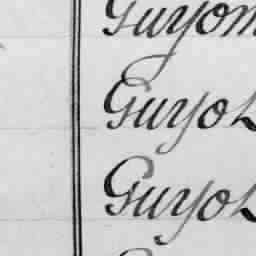 Guyom
Guyot
Guyot